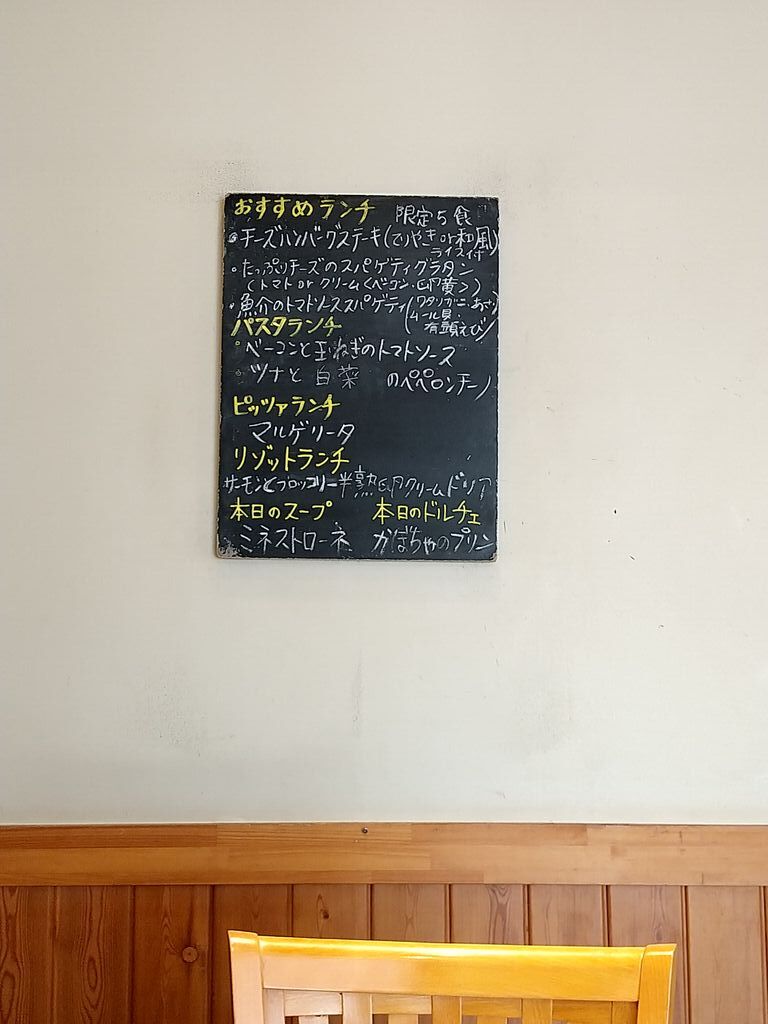 おすすめランチ 限定5食
・チーズハンバーグステーキ(てりやき or 和風)
ライス付
・たっぷりチーズのスパゲティグラタン
(トマト or クリーム<ベーコン・卵黄>)
・魚介のトマトソーススパゲティ(ワタリガニ・あさり
ムール貝・
有頭えび)
パスタランチ
・ベーコンと玉ねぎのトマトソース
・ツナと白菜のペペロンチーノ
ピッツァランチ
マルゲリータ
リゾットランチ
サーモンとブロッコリー半熟卵クリームドリア
本日のスープ 本日のドルチェ
ミネストローネ かぼちゃのプリン